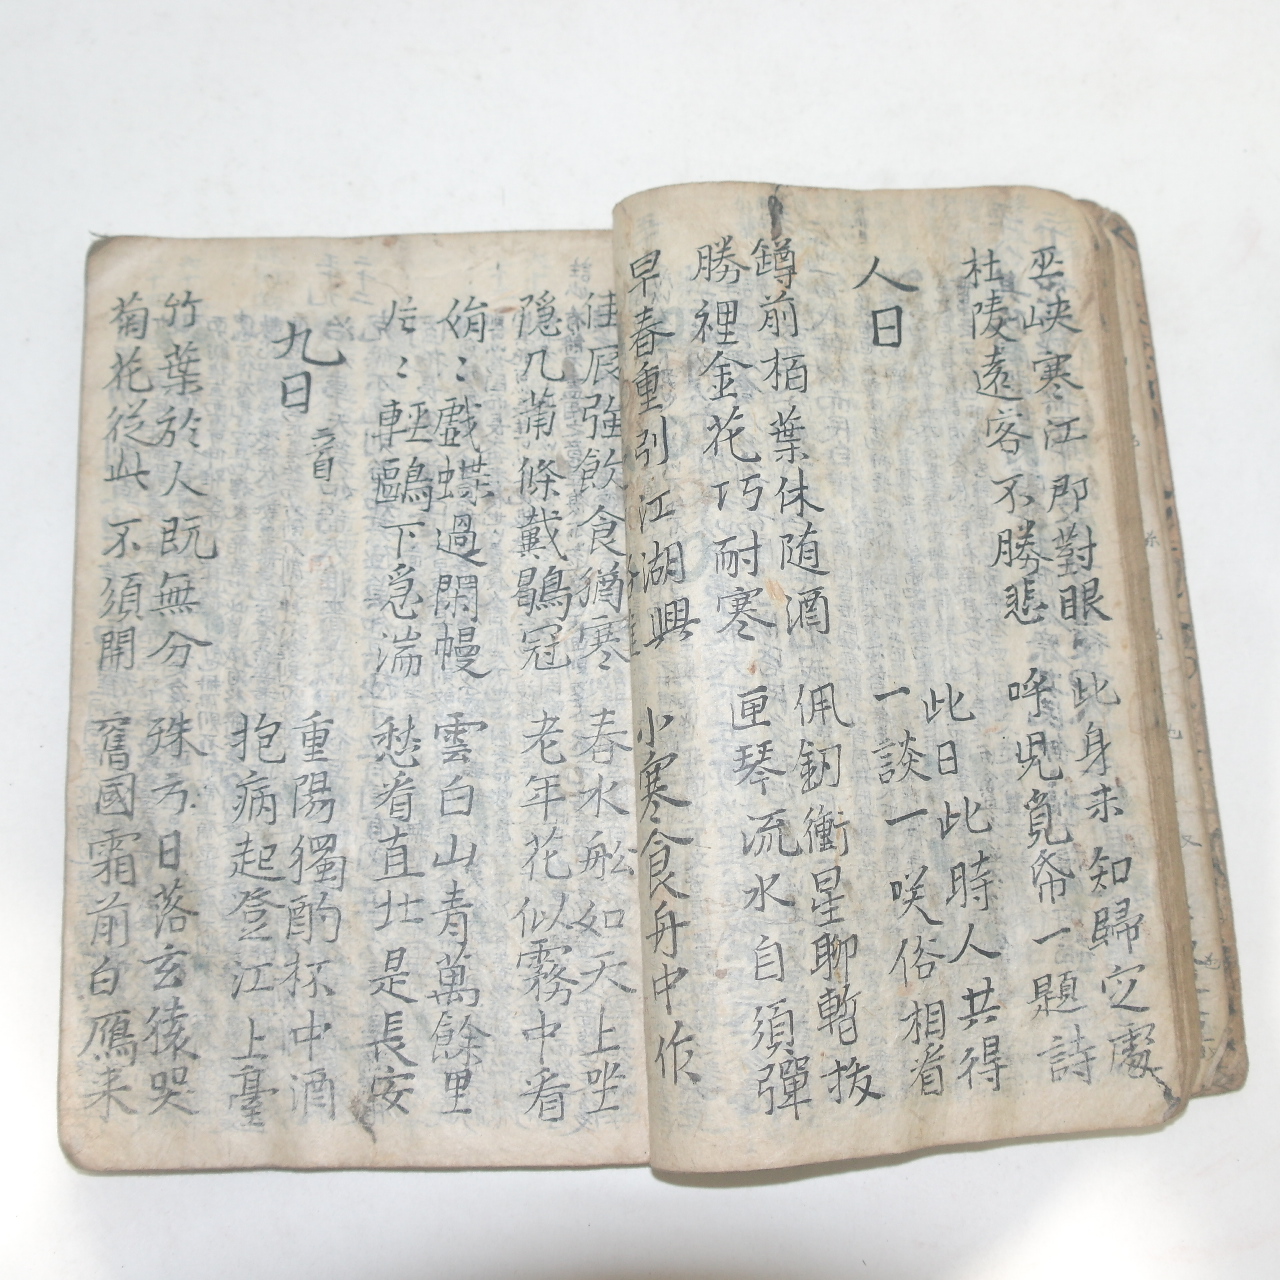 巫峽寒江那對眼 此身未知歸定處
杜陵遠客不勝悲 呼児覓帋一題詩
人日 此日此時人共得
一談一咲俗相看
鐏前栢葉休随酒 佩釖衝星聊暫拔
勝裡金花巧耐寒 匣琴流水自須彈
早春重引江湖興
小寒食舟中作
佳辰強飮食猶寒 春水舩如天上坐
隠几蕭條戴鶡冠 老年花似霧中看
娟〻戱蝶過閑幔 雲白山青萬餘里
片〻輕鷗下急湍 愁看直北是長安
九日 二首 重陽獨酌杯中酒
抱病起登江上臺
竹葉於人既無分 殊方日落玄猿哭
菊花從此不須開 舊國霜前白鴈来